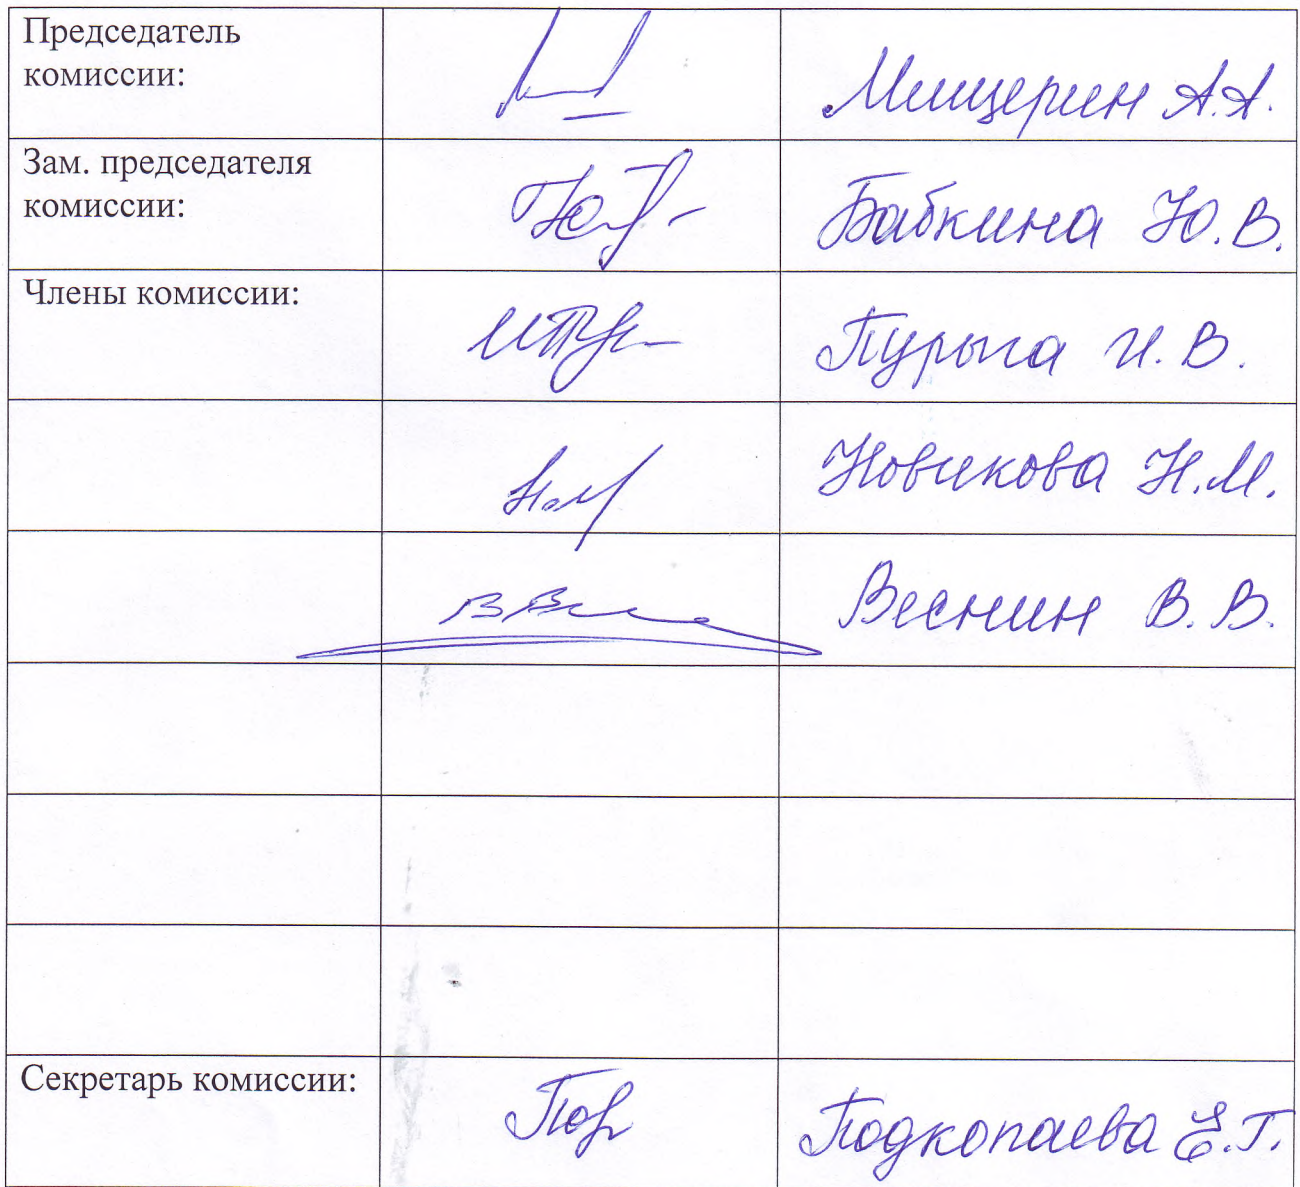 Председатель
комиссии:
Мищерин А.А.
Зам. председателя
комиссии:
Бабкина Ю.В.
Члены комиссии:
Пурыга И.В.
Новикова Н.М.
Веснин В.В.
Секретарь комиссии:
Подкопаева Е.Г.